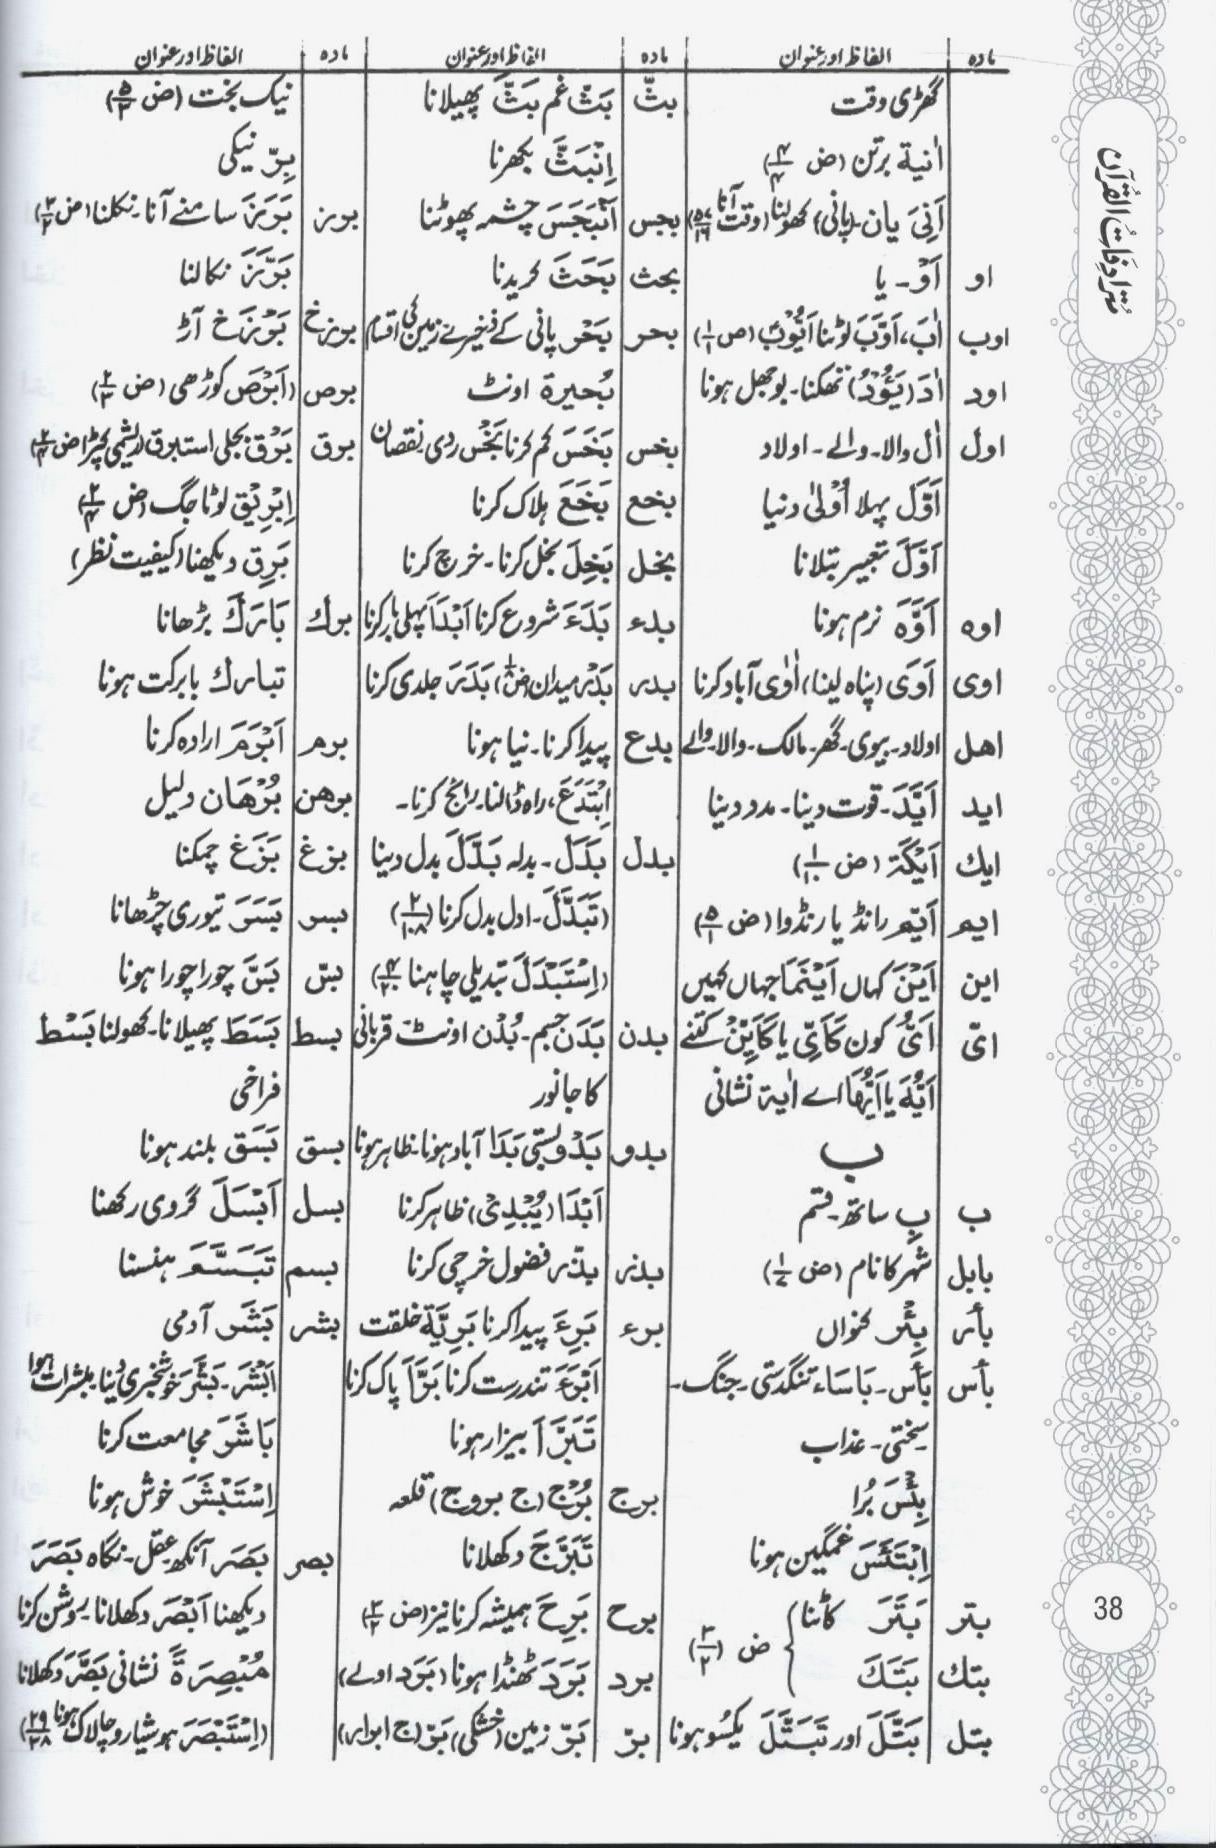 مادہ | الفاظ اور عنوان
گھڑی وقت
اٰنیة برتن (ض ۴/۴)
اَنِیَ یان۔ (پانی) کھولنا (وقت) آنا (۵۷/۱۶)
او | اَوْ۔ یا
اوب | اٰبَ، اَوَّبَ لوٹنا اَیُّوْبُ (ض ۱/۱)
اود | اٰدَ (یَئُوْدُ) تھکنا۔ بوجھل ہونا
اول | اٰل والا۔ والے۔ اولاد
اَوَّل پہلا اُوْلیٰ دنیا
اَوَّلَ تعبیر بتلانا
اوہ | اَوَّہَ نرم ہونا
اوی | اَوَی (پناہ لینا)، اٰوٰی آباد کرنا
اھل | اولاد۔ بیوی۔ گھر۔ مالک۔ والا۔ والے
اید | اَیَّدَ۔ قوت دینا۔ مدد دینا
ایك | اَیْکَة (ض ۱/۱۰)
ایم | اَیِّم رانڈ یا رنڈوا (ض ۵/۱)
این | اَیْنَ کہاں اَیْنَمَا جہاں کہیں
ایّ | اَیُّ کون کَاَیِّ یا کَاَیِّنْ کتنے
اَیُّہَ یا اَیُّھَا اے اٰیة نشانی
ب
ب | بِ ساتھ۔ قسم
بابل | شہر کا نام (ض ۱/۷)
بأر | بِئْر کنواں
بأس | بَأس۔ بَاسَاء تنگدستی۔ جنگ۔
سختی۔ عذاب
بِئْسَ بُرا
اِبْتَئَسَ غمگین ہونا
بتر | بَتَرَ کاٹنا
بتك | بَتَكَ } ض (۳/۲)
بتل | بَتَّلَ اور تَبَتَّلَ یکسُو ہونا
مادہ | الفاظ اور عنوان
بثّ | بَثّ غم بَثَّ پھیلانا
اِنْبَثَّ بکھرنا
بجس | اَنْبَجَسَ چشمہ پھوٹنا
بحث | بَحَثَ کریدنا
بحر | بَحْر پانی کے ذخیرے زمین کی اقسام
بُحیرة اونٹ
بخس | بَخَسَ کم کرنا بَخْس ردی۔ نقصان
بخع | بَخَعَ ہلاک کرنا
بخل | بَخِلَ بخل کرنا۔ خرچ کرنا
بدء | بَدَءَ شروع کرنا اَبْدَاَ پہلی بار کرنا
بدر | بَدْر میدان بَدَرَ جلدی کرنا
بدع | پیدا کرنا۔ نیا ہونا
اِبْتَدَعَ، راہ ڈالنا۔ رائج کرنا۔
بدل | بَدَل۔ بدلہ بَدَّلَ بدل دینا
(تَبَدَّلَ۔ اول بدل کرنا (۲/۱۰۸)
(اِسْتَبْدَلَ تبدیلی چاہنا ۴/۲۰)
بدن | بَدَن جسم۔ بُدْن اونٹ قربانی
کا جانور
بدو | بَدْو بستی بَدَا آباد ہونا۔ ظاہر ہونا
اَبْدَا (یُبْدِیْ) ظاہر کرنا
بذر | بذّر فضول خرچی کرنا
برء | بَرِءَ پیدا کرنا بَرِیَّة خلقت
اَبْرَءَ تندرست کرنا بَرَّاَ پاک کرنا
تَبَرَّ اَ بیزار ہونا
برج | بُرْج (ج بروج) قلعہ
تَبَرَّجَ دکھلانا
برح | بَرِحَ ہمیشہ کرنا نیز (ض ۲/۲)
برد | بَرَدَ ٹھنڈا ہونا (بَرَد اولے)
برّ | بَرّ زمین (خشکی) بَرّ (ج ابرار)
مادہ | الفاظ اور عنوان
نیک بخت (ض ۵/۲)
بِرّ نیکی
برز | بَرَزَ سامنے آنا۔ نکلنا (ض ۲/۲)
بَرَّزَ نکالنا
برزخ | بَرْزَخ آڑ
برص | (اَبْرَص کوڑھی (ض ۲/۳)
برق | بَرْق بجلی استبرق (ریشمی کپڑا ض ۲/۳)
اِبْرِیْق لوٹا جگ (ض ۲/۴)
بَرِق دیکھنا (کیفیت نظر)
برك | بَارَكَ بڑھانا
تبارك بابرکت ہونا
برم | اَبْرَمَ ارادہ کرنا
برھن | بُرْھَان دلیل
بزغ | بَزَغ چمکنا
بسر | بَسَرَ تیوری چڑھانا
بسّ | بَسَّ چورا چورا ہونا
بسط | بَسَطَ پھیلانا۔ کھولنا بَسْط
فراخی
بسق | بَسَق بلند ہونا
بسل | اَبْسَلَ گروی رکھنا
بسم | تَبَسَّمَ ہنسنا
بشر | بَشَر آدمی
اَبْشَرَ۔ بَشَّرَ خوشخبری دینا مبشرات ہوا
بَاشَرَ مجامعت کرنا
اِسْتَبْشَرَ خوش ہونا
بصر | بَصَر آنکھ۔ عقل۔ نگاہ بَصَرَ
دیکھنا اَبْصَرَ دکھلانا۔ روشن کرنا
مُبْصِرَةً نشانی بَصَّرَ دکھلانا
(اِسْتَبْصَرَ ہوشیار و چالاک ہونا ۲۹/۳۸)
مُترادِفَاتُ القُرآن
38